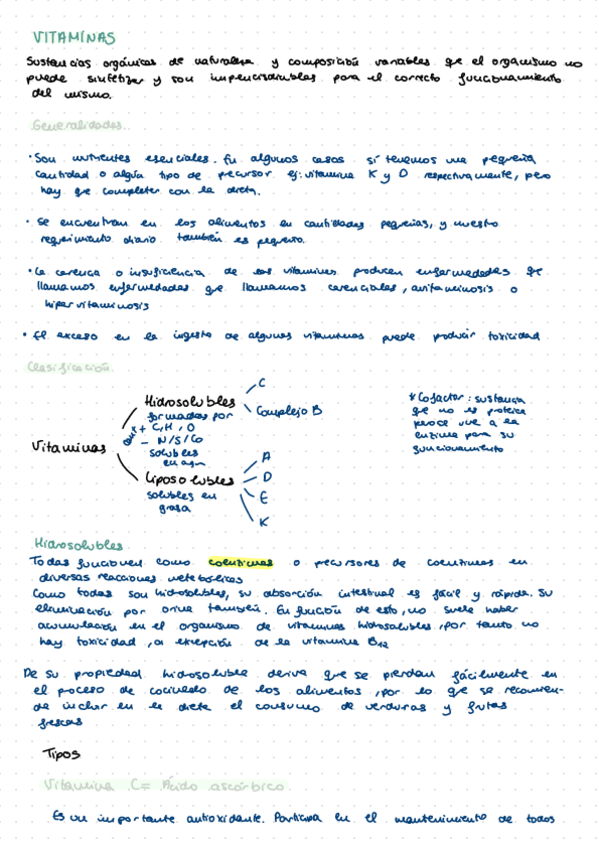 VITAMINAS
Sustancias orgánicas de naturaleza y composición variables que el organismo no
puede sintetizar y son imprescindibles para el correcto funcionamiento
del mismo.
Generalidades.
· Son nutrientes esenciales. En algunos casos sí tenemos una pequeña
cantidad o algún tipo de precursor ej: vitamina K y D respectivamente, pero
hay que completar con la dieta.
· Se encuentran en los alimentos en cantidades pequeñas, y nuestro
requerimiento diario también es pequeño.
· La carencia o insuficiencia de las vitaminas producen enfermedades que
llamamos enfermedades que llamamos carenciales, avitaminosis o
hipervitaminosis
· El exceso en la ingesta de algunas vitaminas puede producir toxicidad
Clasificación.
Vitaminas
Hidrosolubles
formadas por
+ C, H, O
- N/S/Co
solubles
en agua
C
Complejo B
Liposolubles
solubles en
grasa
A
D
E
K
* Cofactor: sustancia
que no es proteica
que se une a la
enzima para su
funcionamiento
Hidrosolubles
Todas funcionan como coenzimas o precursores de coenzimas en
diversas reacciones metabólicas
Como todas son hidrosolubles, su absorción intestinal es fácil y rápida. Su
eliminación por orina también. En función de esto, no suele haber
acumulación en el organismo de vitaminas hidrosolubles, por tanto no
hay toxicidad, a excepción de la vitamina B12
De su propiedad hidrosoluble deriva que se pierdan fácilmente en
el proceso de cocinado de los alimentos, por lo que se recomien-
da incluir en la dieta el consumo de verduras y frutas
frescas
Tipos
Vitamina C = Ácido ascórbico
Es un importante antioxidante. Participa en el mantenimiento de todos